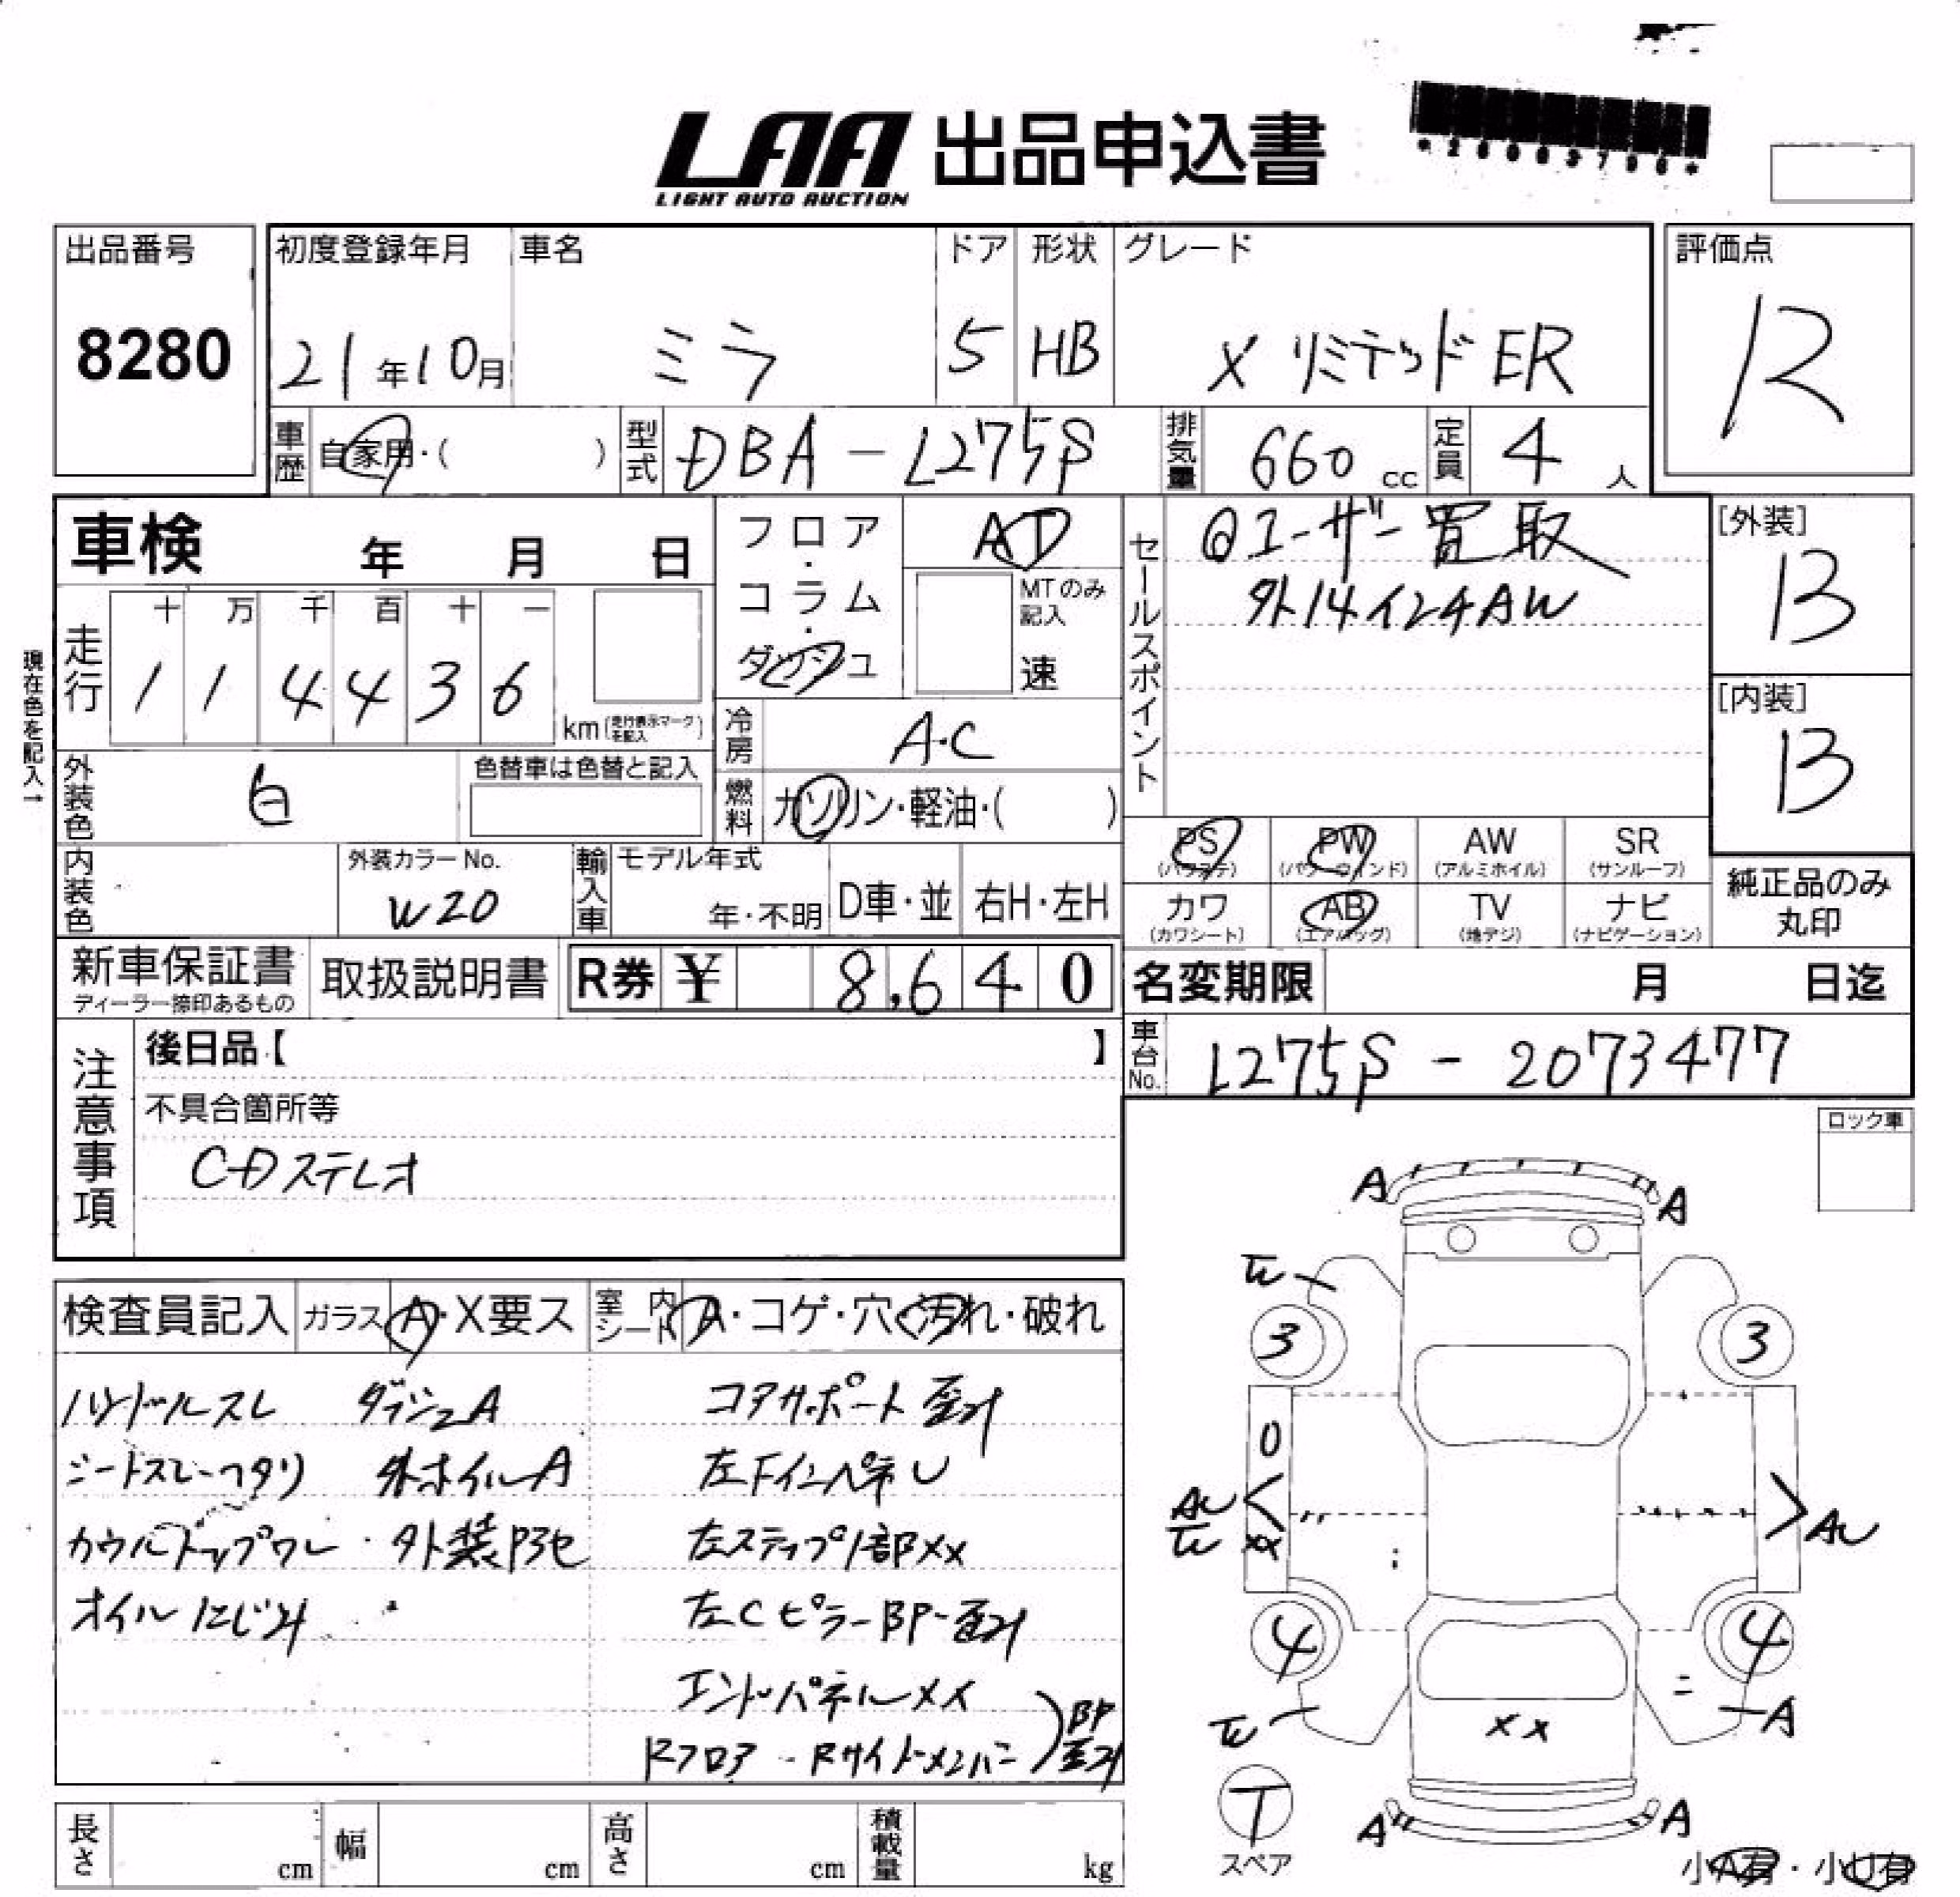 LAA 出品申込書
LIGHT AUTO AUCTION
出品番号
8280
初度登録年月 車名 ドア 形状 グレード
21年10月 ミラ 5 HB X リミテッド ER
評価点
R
車歴 自家用・( ) 型式 DBA-L275S 排気量 660 cc 定員 4 人
車検 年 月 日
フロア・コラム・ダッシュ
AT
MTのみ記入
速
セールスポイント
◎ユーザー買取
外14インチAW
[外装]
B
[内装]
B
現在色を記入→
走行 十 万 千 百 十 一
1 1 4 4 3 6
km(走行表示マークを記入)
冷房 A・C
外装色 白 色替車は色替と記入
燃料 ガソリン・軽油・( )
内装色
外装カラーNo.
W20
輸入車 モデル年式
年・不明 D車・並 右H・左H
PS (パワステ) PW (パワーウインド) AW (アルミホイル) SR (サンルーフ)
カワ (カワシート) AB (エアバッグ) TV (地デジ) ナビ (ナビゲーション)
純正品のみ
丸印
新車保証書 取扱説明書 R券 ¥ 8,640
ディーラー捺印あるもの
名変期限 月 日迄
車台No. L275S-2073477
注意事項
後日品【 】
不具合箇所等
CDステレオ
ロック車
検査員記入 ガラス A・X要ス 室内シート A・コゲ・穴・汚れ・破れ
ハンドルスレ ダッシュA コアサポート歪み
シートスレ・ヘタリ 外ホイルA 左FインパネU
カウルトップワレ 外装色アセ 左ステップ内部XX
オイルにじみ 左CピラーBP・歪み
エンドパネルXX
Rフロア・Rサイドメンバー )BP歪み
A A
W
3 3
AU
W XX
AU
4 4
W XX A
T
スペア
A A
小A有・小U有
長さ cm 幅 cm 高さ cm 積載量 kg